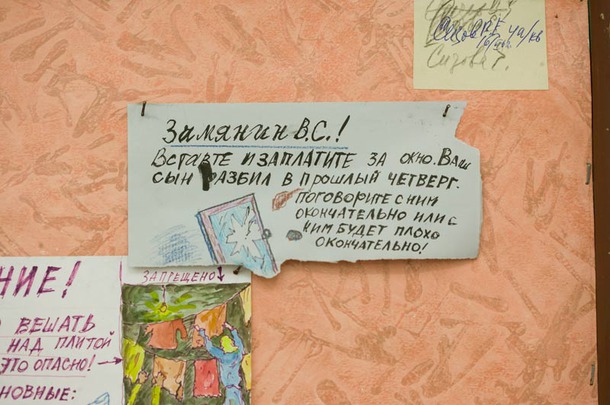 Сизова Г.
Замянин В.С.!
Вставте и заплатите за окно. Ваш
сын разбил в прошлый четверг.
Поговорите с ним
окончательно или с
ним будет плохо
окончательно!
НИЕ!
ВЕШАТЬ
НАД ПЛИТОЙ
ЭТО ОПАСНО!
НОВНЫЕ:
ЗАПРЕЩЕНО